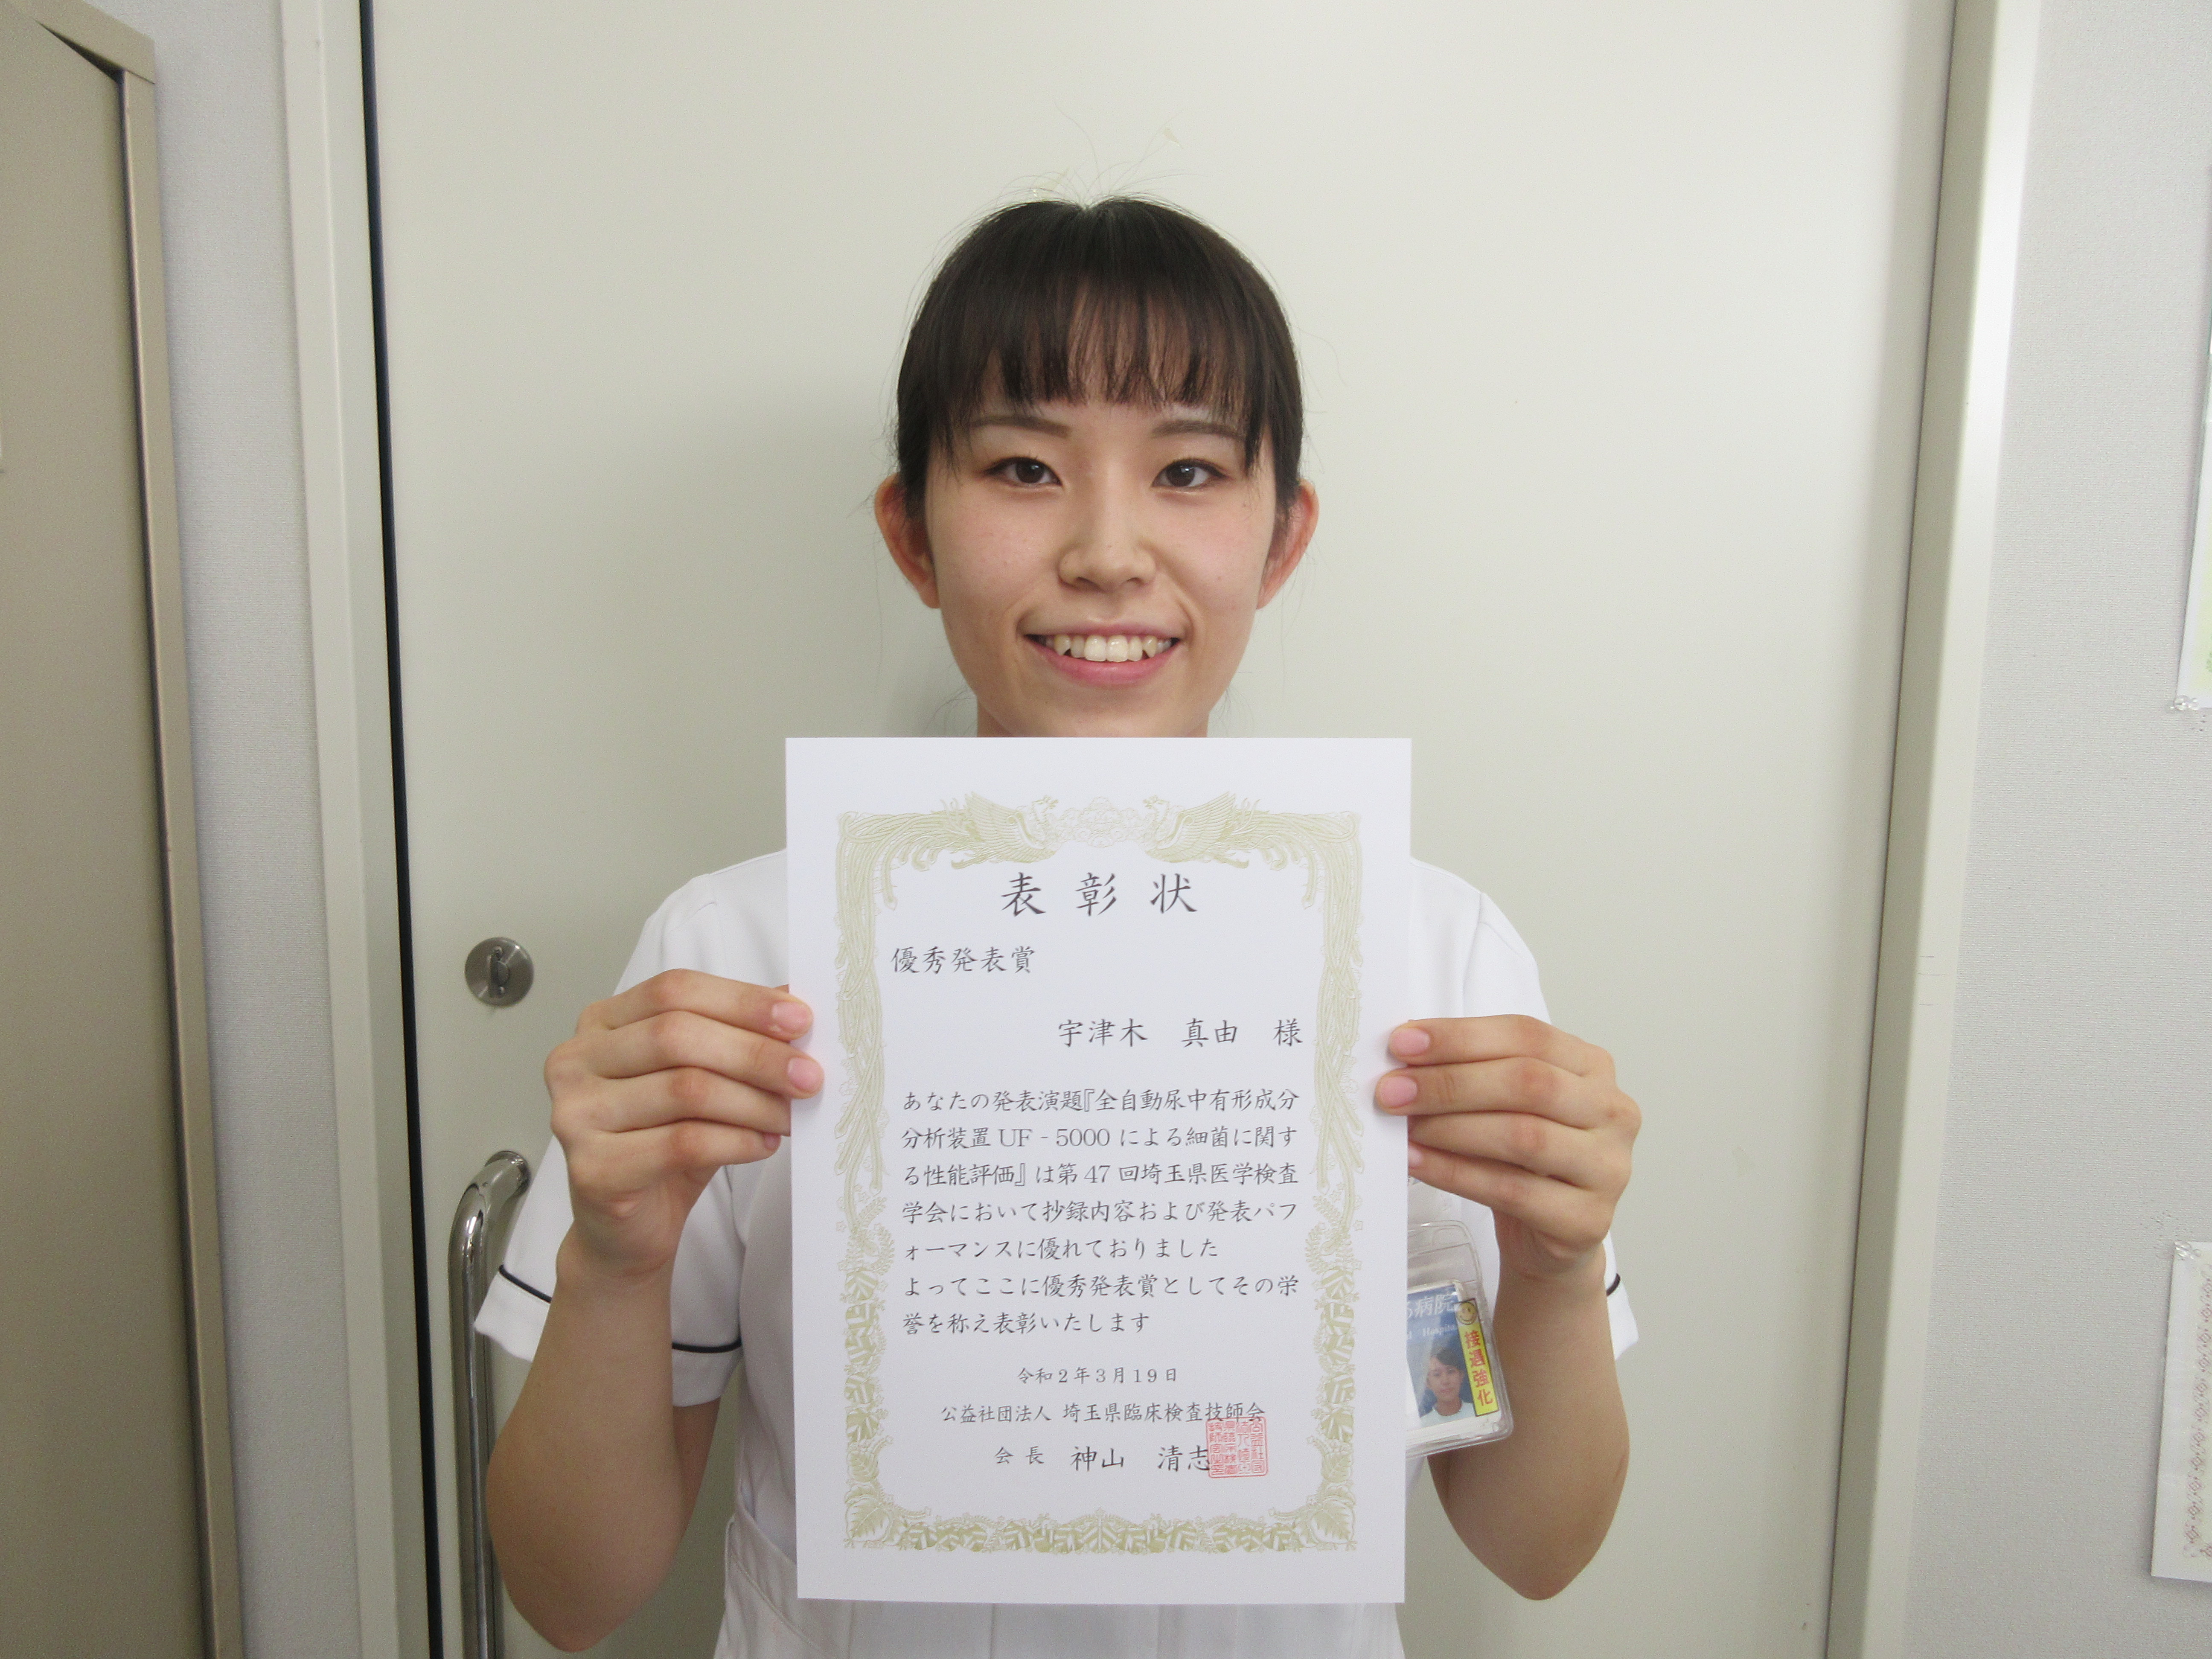 表彰状
優秀発表賞
宇津木　真由　様
あなたの発表演題『全自動尿中有形成分
分析装置 UF‐5000 による細菌に関す
る性能評価』は第 47 回埼玉県医学検査
学会において抄録内容および発表パフ
ォーマンスに優れておりました
よってここに優秀発表賞としてその栄
誉を称え表彰いたします
令和２年３月１９日
公益社団法人 埼玉県臨床検査技師会
会長　神山　清志
病院
接遇強化